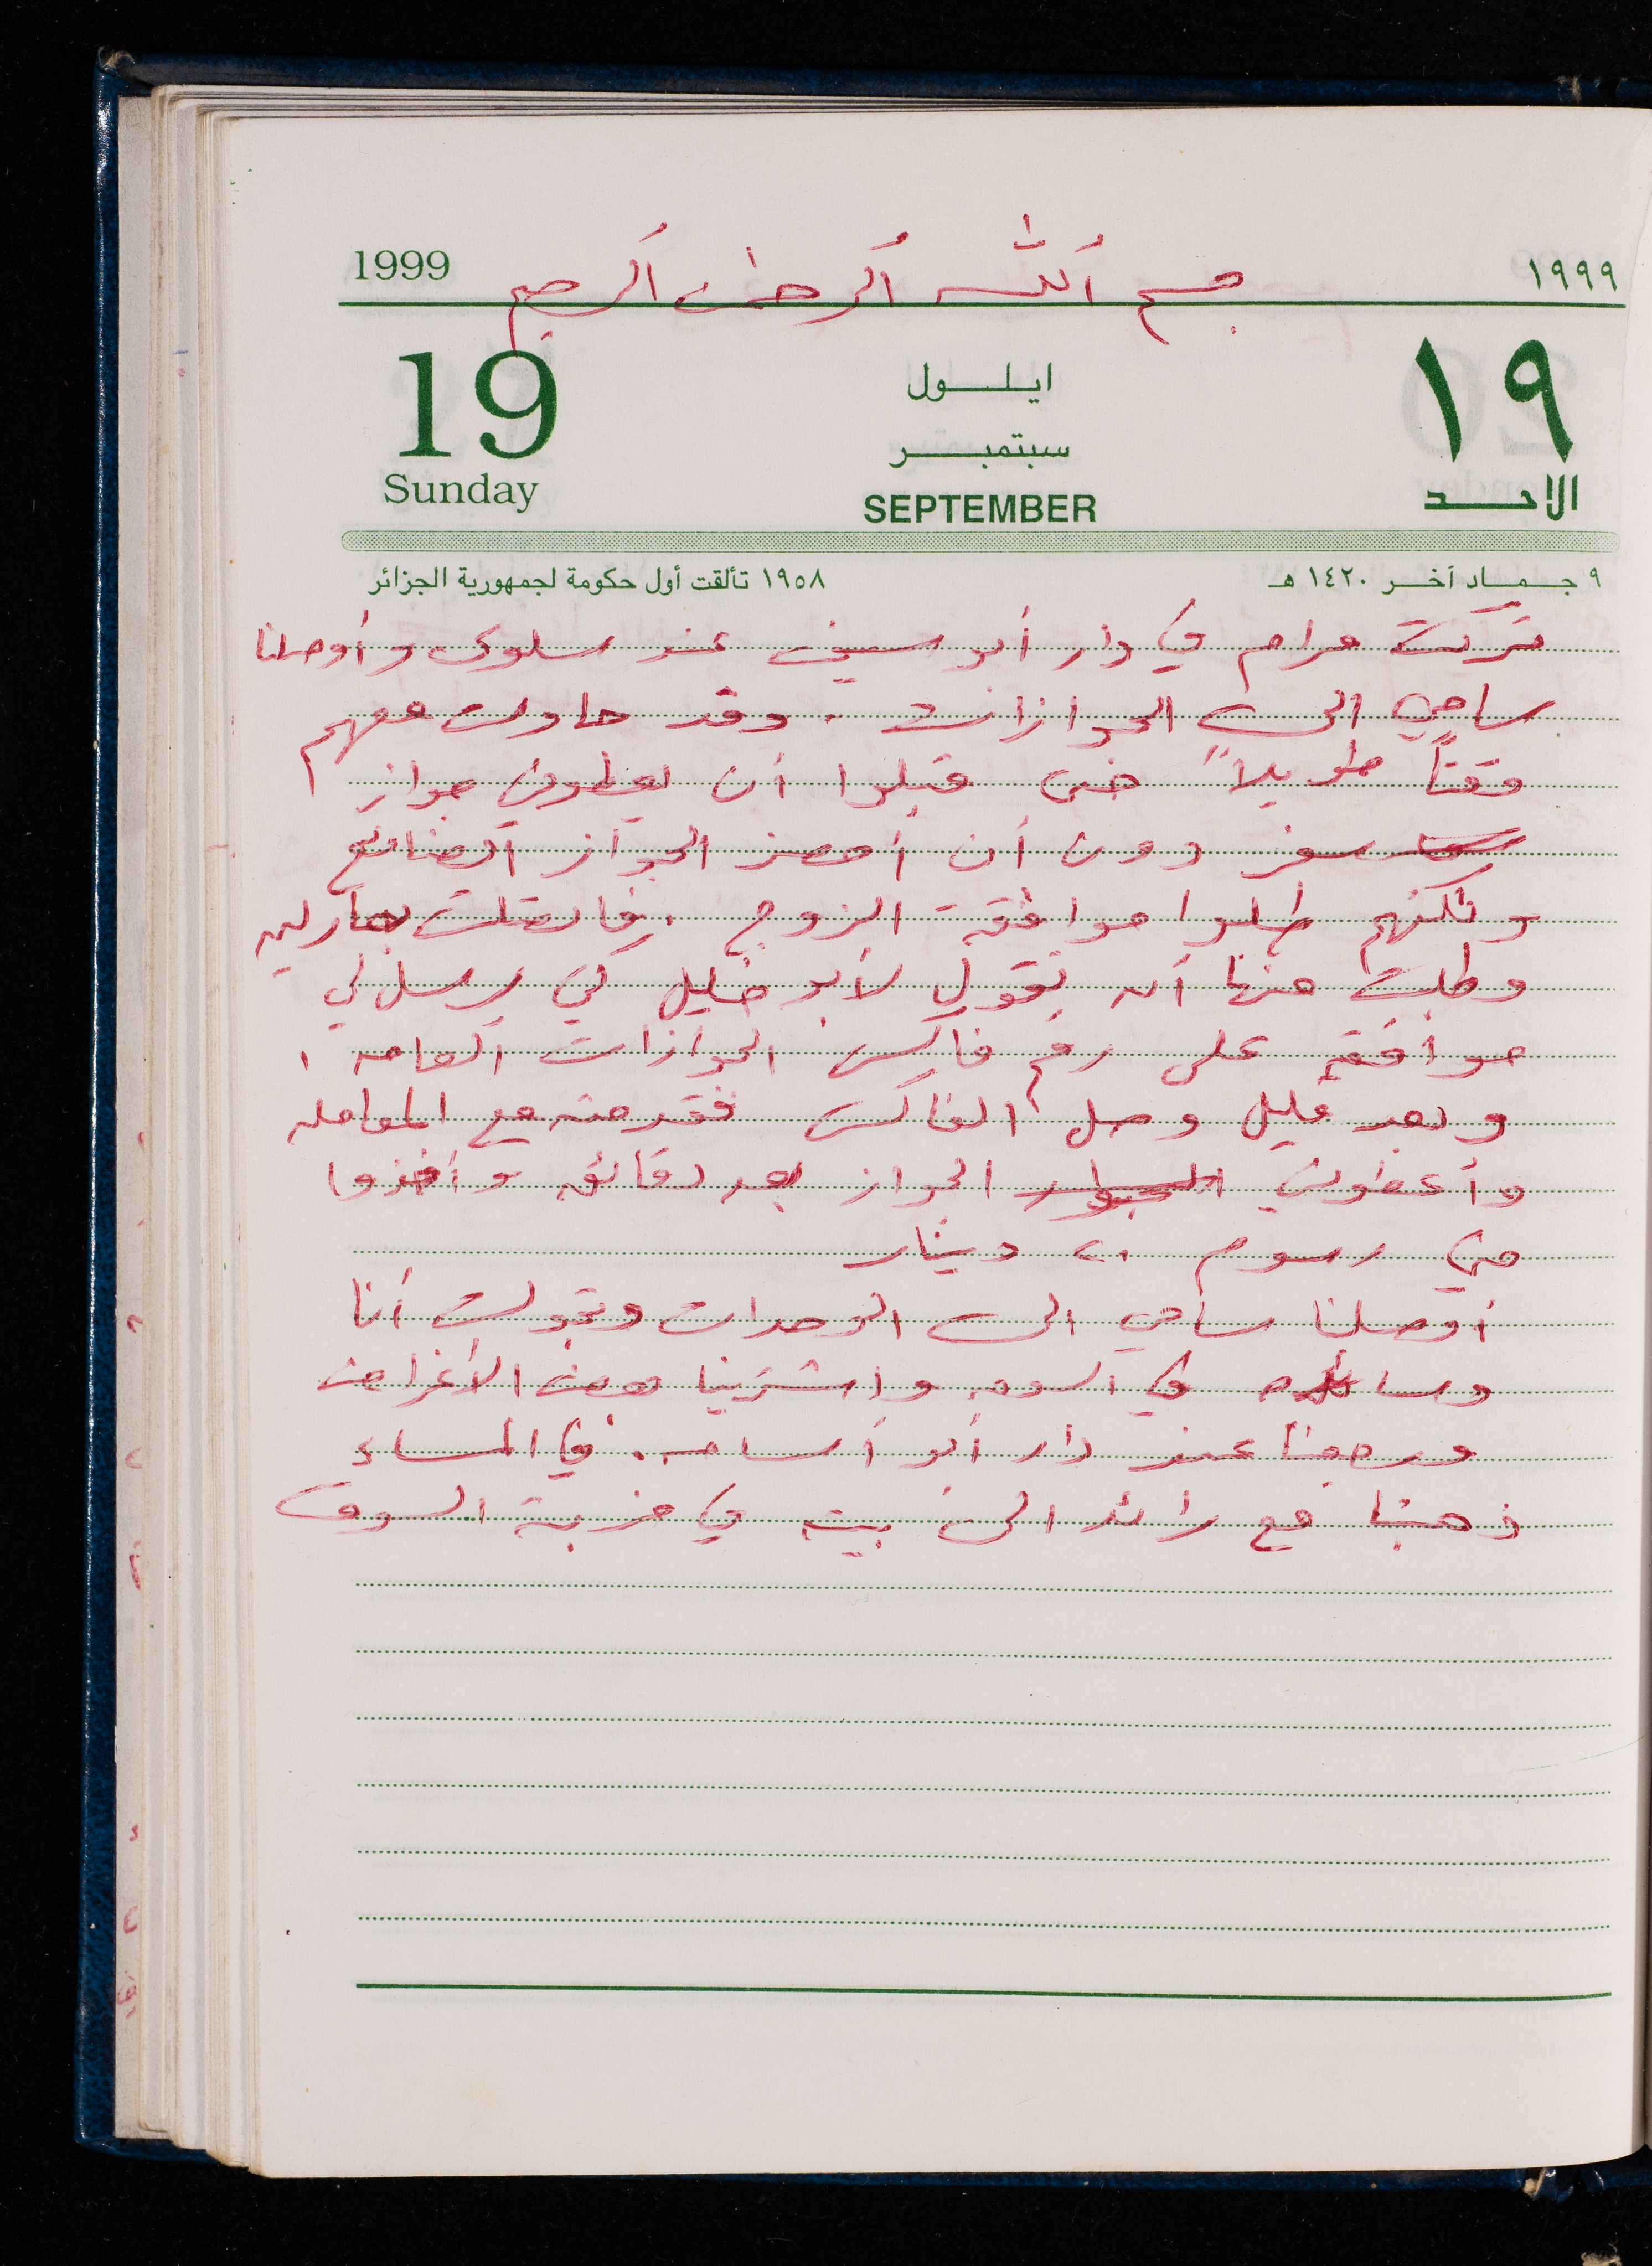 1999 بسم الله الرحمن الرحيم ١٩٩٩
19 ايلول ١٩
سبتمبر
Sunday SEPTEMBER الاحد
٩ جماد آخر ١٤٢٠ هـ ١٩٥٨ تألقت أول حكومة لجمهورية الجزائر
تركت مرام في دار أبو سيف عند سلوى وأوصلنا
سامي الى الجوازات . وقد حاولت معهم
وقتاً طويلاً حتى قبلوا أن يعطوني جواز
سفر دون أن أحضر الجواز الضائع
ولكنهم طلبوا موافقة الزوج . فاتصلت بمارلين
وطلبت منها أن تقول لأبو خليل كي يرسل لي
موافقة على رقم فاكس الجوازات العامه .
وبعد قليل وصل الفاكس فقدمته مع المعامله
وأعطوني الجواز بعد دقائق وأخذوا
مني رسوم ٢٠ دينار
أوصلنا سامي الى الوحدات وتجولت أنا
في السوق واشترينا بعض الأغراض
ورجعنا عند دار أبو أسامه . في المساء
ذهبنا مع رائد الى بيته في خربة السوق